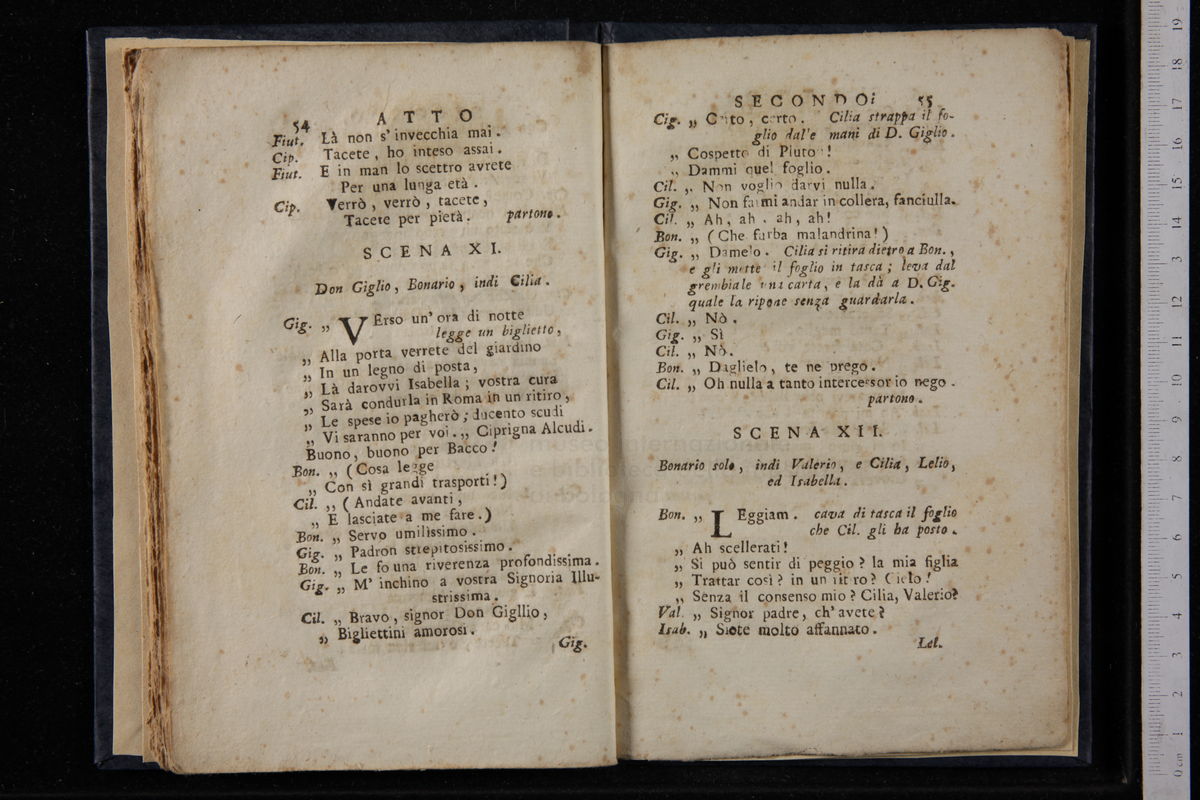 54
ATTO
Fiut. Là non s'invecchia mai.
Cip. Tacete, ho inteso assai.
Fiut. E in man lo scettro avrete
Per una lunga età.
Cip. Verrò, verrò, tacete,
Tacete per pietà. partono.
SCENA XI.
Don Giglio, Bonario, indi Cilia.
Gig. „ VErso un' ora di notte
legge un biglietto,
„ Alla porta verrete del giardino
„ In un legno di posta,
„ Là darovvi Isabella; vostra cura
„ Sarà condurla in Roma in un ritiro,
„ Le spese io pagherò; ducento scudi
„ Vi saranno per voi. „ Ciprigna Alcudi.
Buono, buono per Bacco!
Bon. „ (Cosa legge
„ Con sì grandi trasporti!)
Cil. „ (Andate avanti,
„ E lasciate a me fare.)
Bon. „ Servo umilissimo.
Gig. „ Padron strepitosissimo.
Bon. „ Le fo una riverenza profondissima.
Gig. „ M' inchino a vostra Signoria Illu-
strissima.
Cil. „ Bravo, signor Don Gigllio,
„ Bigliettini amorosi.
Gig.
SECONDO. 55
Cig. „ Certo, certo. Cilia strappa il fo-
glio dal'e mani di D. Giglio.
„ Cospetto di Pluto!
„ Dammi quel foglio.
Cil. „ Non voglio darvi nulla.
Gig. „ Non farmi andar in collera, fanciulla.
Cil. „ Ah, ah, ah, ah!
Bon. „ (Che furba malandrina!)
Gig. „ Damelo. Cilia si ritira dietro a Bon.,
e gli mette il foglio in tasca; leva dal
grembiale una carta, e la dà a D. Gig.
quale la ripone senza guardarla.
Cil. „ Nò.
Gig. „ Sì
Cil. „ Nò.
Bon. „ Daglielo, te ne prego.
Cil. „ Oh nulla a tanto intercessor io nego.
partono.
SCENA XII.
Bonario solo, indi Valerio, e Cilia, Lelio,
ed Isabella.
Bon. „ LEggiam. cava di tasca il foglio
che Cil. gli ha posto.
„ Ah scellerati!
„ Si può sentir di peggio? la mia figlia
„ Trattar così? in un ritiro? Cielo!
„ Senza il consenso mio? Cilia, Valerio?
Val. „ Signor padre, ch' avete?
Isab. „ Siete molto affannato.
Lel.